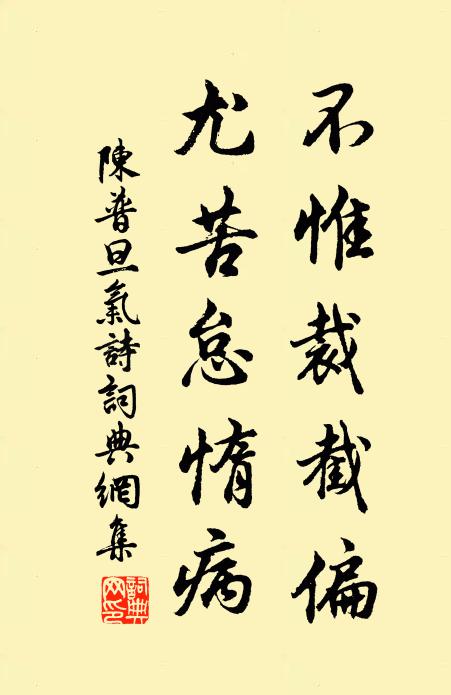 不惟裁截偏
尤苦怠惰病
陳普旦氣詩詞典網集
詞典網印